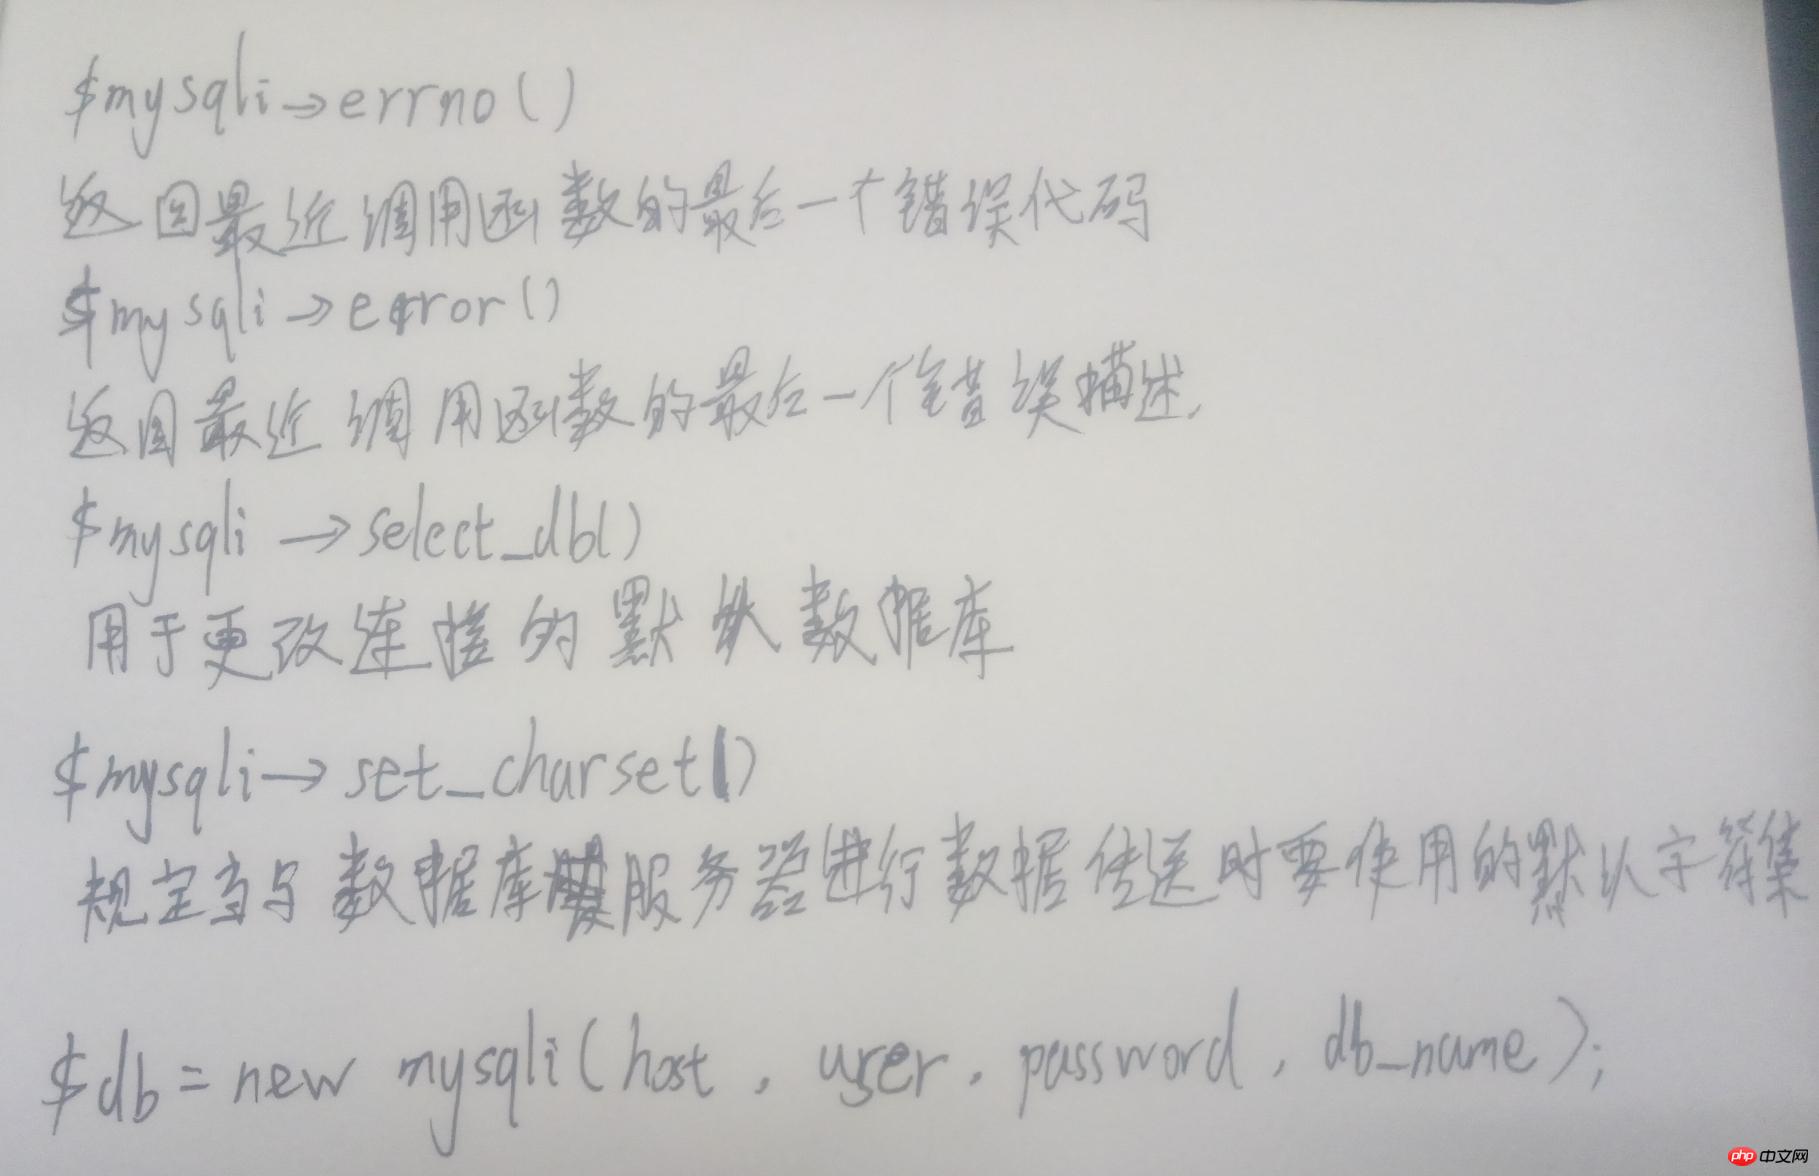 $mysqli→errno()
返回最近调用函数的最后一个错误代码
$mysqli→error()
返回最近调用函数的最后一个错误描述.
$mysqli→select_db()
用于更改连接的默认数据库
$mysqli→set_charset()
规定当与数据库服务器进行数据传送时要使用的默认字符集
$db=new mysqli(host, user, password, db_name);
php 中文网